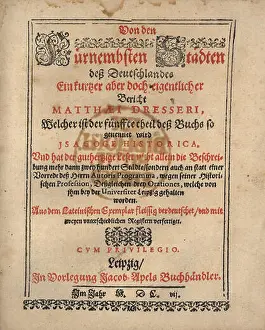 Von den
Fürnembsten Städten
deß Deutschlandes
Ein kurtzer aber doch eigentlicher
Bericht
MATTHÆI DRESSERI,
Welcher ist der fünffte theil deß Buchs so
genennet wird
ISAGOGE HISTORICA.
Und hat der guthertzige Leser nit allein die Beschrei-
bung mehr dann zwey hundert Städte / sondern auch an statt einer
Vorrede deß Herrn Autoris Programma, wegen seiner Histori-
schen Profession, Deßgleichen drey Orationes, welche von
ihm bey der Universitet Leipzig gehalten
worden.
Aus dem Lateinischen Exemplar fleissig verdeutschet / und mit
zweyen unterschiedlichen Registern verfertiget.
CVM PRIVILEGIO.
Leipzig /
In Vorlegung Jacob Apels Buchhändler.
Im Jahr M. DC. vij.